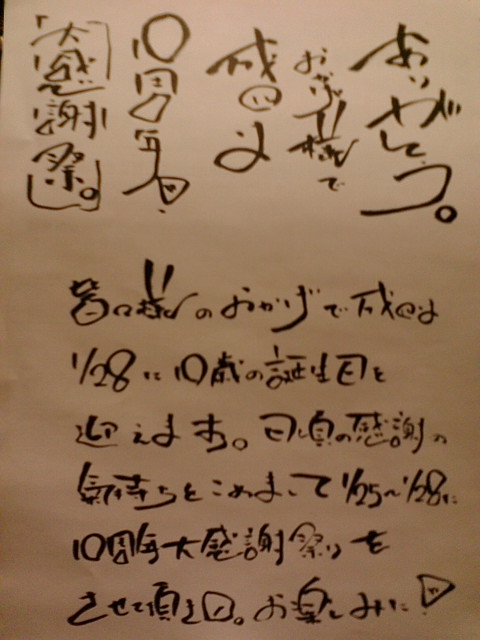 ありがとう。
おかげ様で
成@は
10周年
「大感謝祭」。
皆々様のおかげで成@は
1/28に10歳の誕生日を
迎えます。日頃の感謝の
気持ちをこめまして1/25~1/28に
10周年大感謝祭りを
させて頂き
お楽しみに!